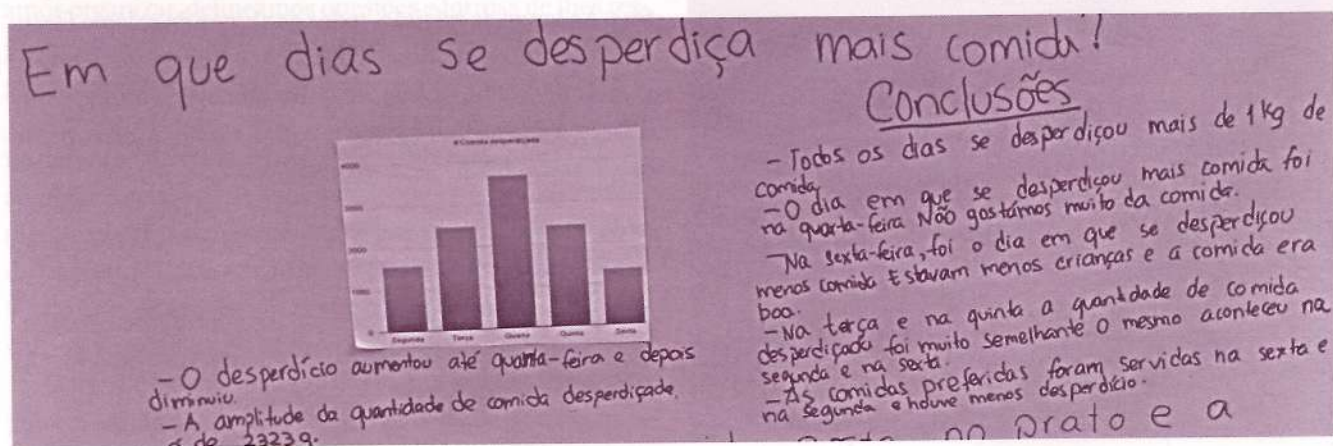 Em que dias se desperdiça mais comida!
# Comida desperdiçada
4000
3000
2000
1000
0
Segunda Terça Quarta Quinta Sexta
- O desperdício aumentou até quarta-feira e depois
diminuiu.
- A amplitude da quantidade de comida desperdiçada,
é de 2323g.
Conclusões
- Todos os dias se desperdiçou mais de 1 kg de
comida
- O dia em que se desperdiçou mais comida foi
na quarta-feira Não gostámos muito da comida.
- Na sexta-feira, foi o dia em que se desperdiçou
menos comida Estavam menos crianças e a comida era
boa.
- Na terça e na quinta a quantidade de comida
desperdiçada foi muito semelhante O mesmo aconteceu na
segunda e na sexta.
- As comidas preferidas foram servidas na sexta e
na segunda e houve menos desperdício.
no prato e a